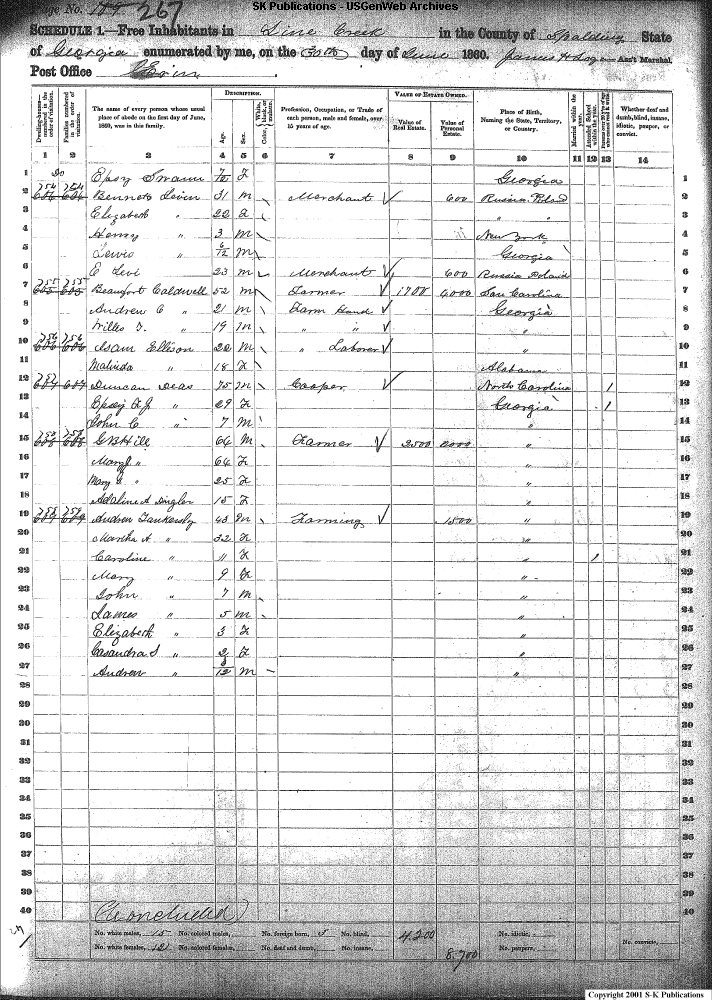 SK Publications - USGenWeb Archives
Page No. 267
SCHEDULE 1.—Free Inhabitants in Line Creek in the County of Spalding State
of Georgia enumerated by me, on the 30th day of June 1860. James H Ass't Marshal.
Post Office
Dwelling-houses— numbered in the order of visitation.
Families numbered in the order of visitation.
The name of every person whose usual place of abode on the first day of June, 1860, was in this family.
DESCRIPTION.
Age.
Sex.
Color, White, black, or mulatto.
Profession, Occupation, or Trade of each person, male and female, over 15 years of age.
VALUE OF ESTATE OWNED.
Value of Real Estate.
Value of Personal Estate.
Place of Birth, Naming the State, Territory, or Country.
Married within the year.
Attended School within the year.
Whether deaf and dumb, blind, insane, idiotic, pauper, or convict.
1 2 3 4 5 6 7 8 9 10 11 12 13 14
1 Epsy Swann F Georgia 1
2 754 754 Bennett Levin 31 m Merchant 600 Russia Poland 2
3 Elizabeth " 22 " " 3
4 Henry " 3 m New York 4
5 Lewis " 6/12 m Georgia 5
6 E Levi 23 m Merchant 600 Russia Poland 6
7 755 755 Beaufort Caldwell 52 m Farmer 1700 4000 Carolina 7
8 Andrew C " 21 m Farm Hand Georgia 8
9 Willes T. " 19 m " " " 9
10 756 756 Isam Ellison 22 m " Laborer " 10
11 Malinda " 18 F Alabama 11
12 757 Duncan Deas 75 m Cooper North Carolina 1 12
13 Epsey F J " 29 F Georgia 1 13
14 John C " 7 m " 14
15 758 758 G B Hill 64 m Farmer 2500 " 15
16 Mary J " 64 F " 16
17 Mary " 25 F " 17
18 Adaline A 15 F " 18
19 759 759 Andrew Tankersly 43 m Farming 1500 " 19
20 Martha A " 32 F " 20
21 Caroline " 11 F " 1 21
22 Mary " 9 F " 22
23 John " 7 m " 23
24 James " 5 m " 24
25 Elizabeth " 3 F " 25
26 Casandra S " 2 F " 26
27 Andrew " m " 27
28 28
29 29
30 30
31 31
32 32
33 33
34 34
35 35
36 36
37 37
38 38
39 39
40 (Concluded) 40
No. white males, 15 No. colored males, No. foreign born, 3 No. blind, 4.200 No. idiotic,
No. white females, 12 No. colored females, No. deaf and dumb, No. insane, 8.700 No. paupers, No. convicts,
Copyright 2001 S-K Publications